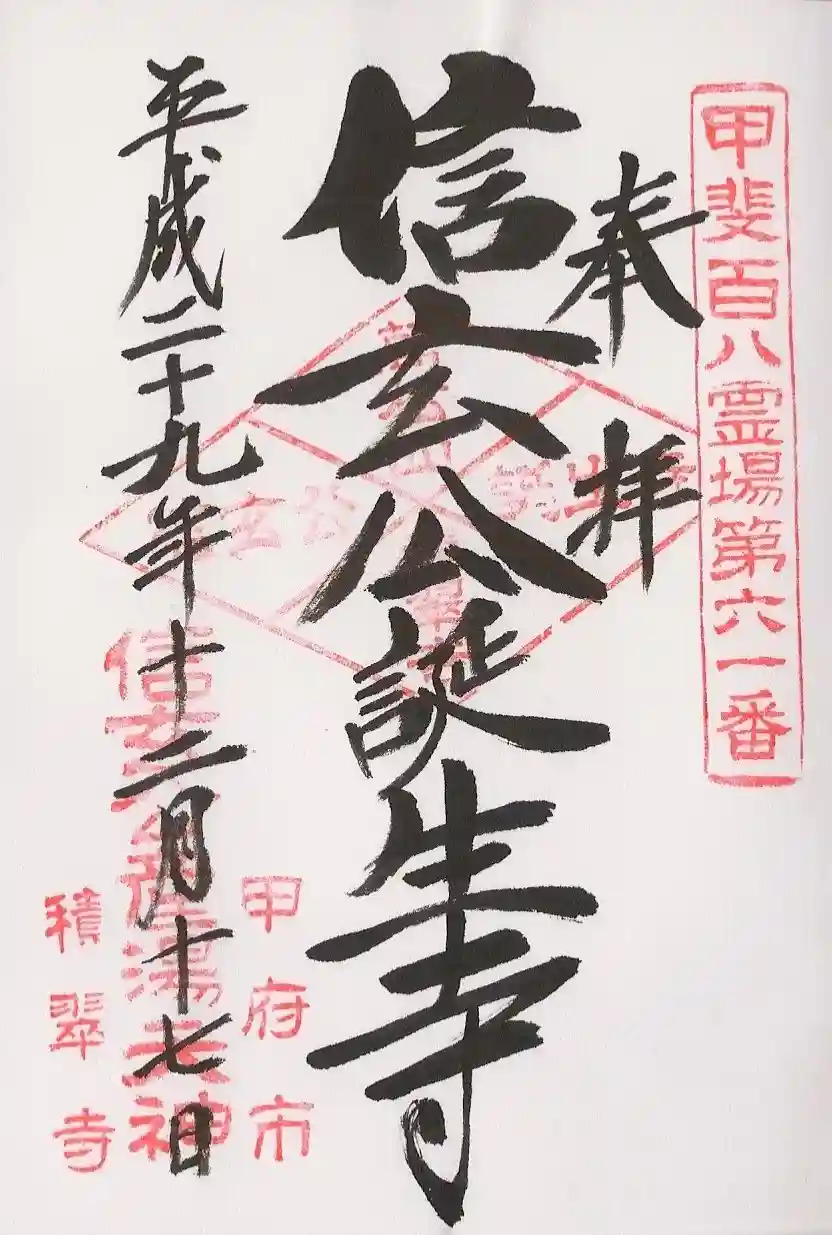 甲斐百八霊場第六一番
奉拝
信玄公誕生寺
平成二十九年十二月十七日
甲府市
信玄公産湯天神
積翠寺